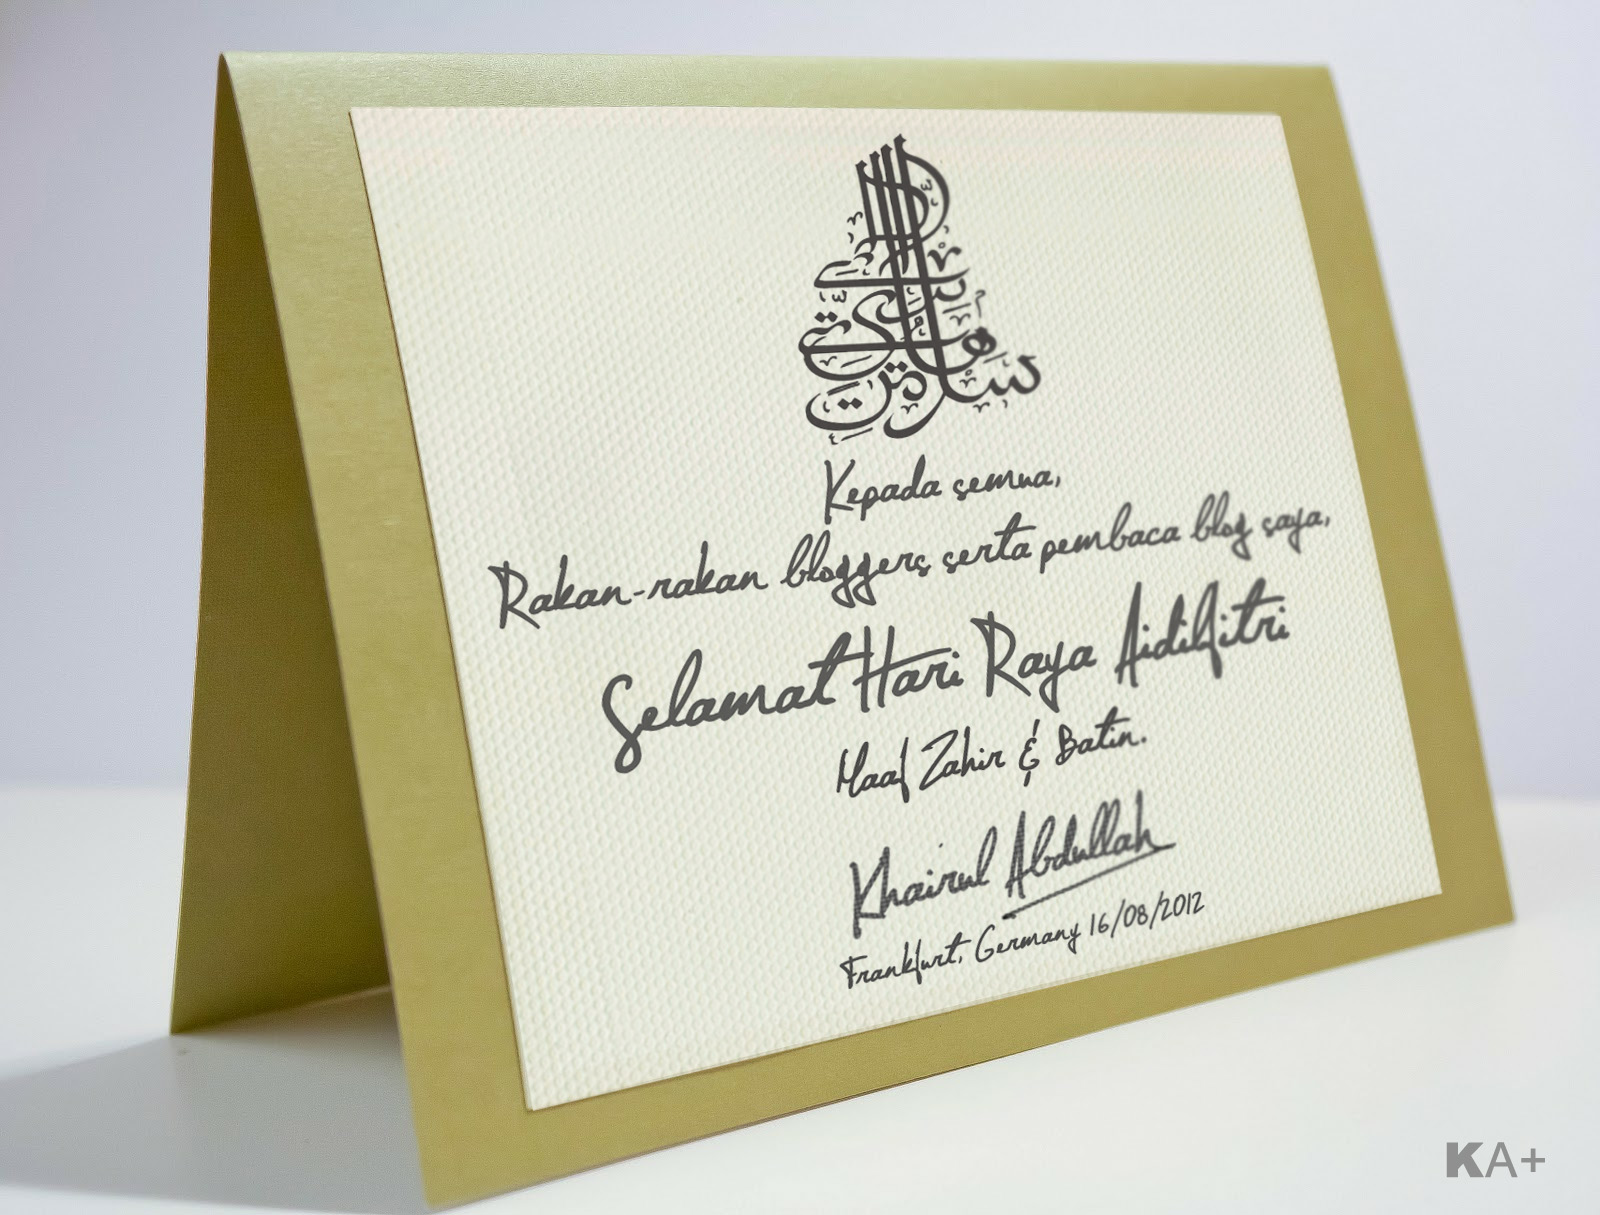 Kepada semua,
Rakan-rakan bloggers serta pembaca blog saya,
Selamat Hari Raya Aidilfitri
Maaf Zahir & Batin.
Khairul Abdullah
Frankfurt, Germany 16/08/2012
KA+